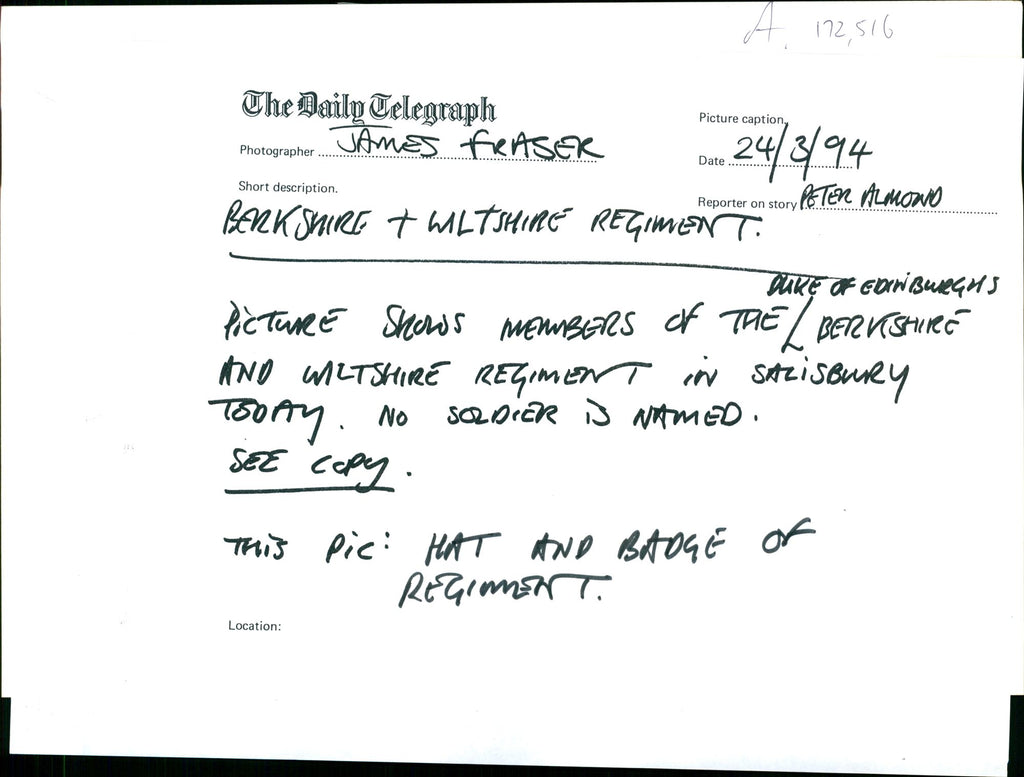 A. 172,516
The Daily Telegraph
Picture caption,
Photographer JAMES FRASER
Date 24/3/94
Short description.
Reporter on story PETER ALMOND
BERKSHIRE + WILTSHIRE REGIMENT.
DUKE OF EDINBURGHS
PICTURE SHOWS MEMBERS OF THE BERKSHIRE
AND WILTSHIRE REGIMENT IN SALISBURY
TODAY. NO SOLDIER IS NAMED.
SEE COPY.
THIS PIC: HAT AND BADGE OF
REGIMENT.
Location: